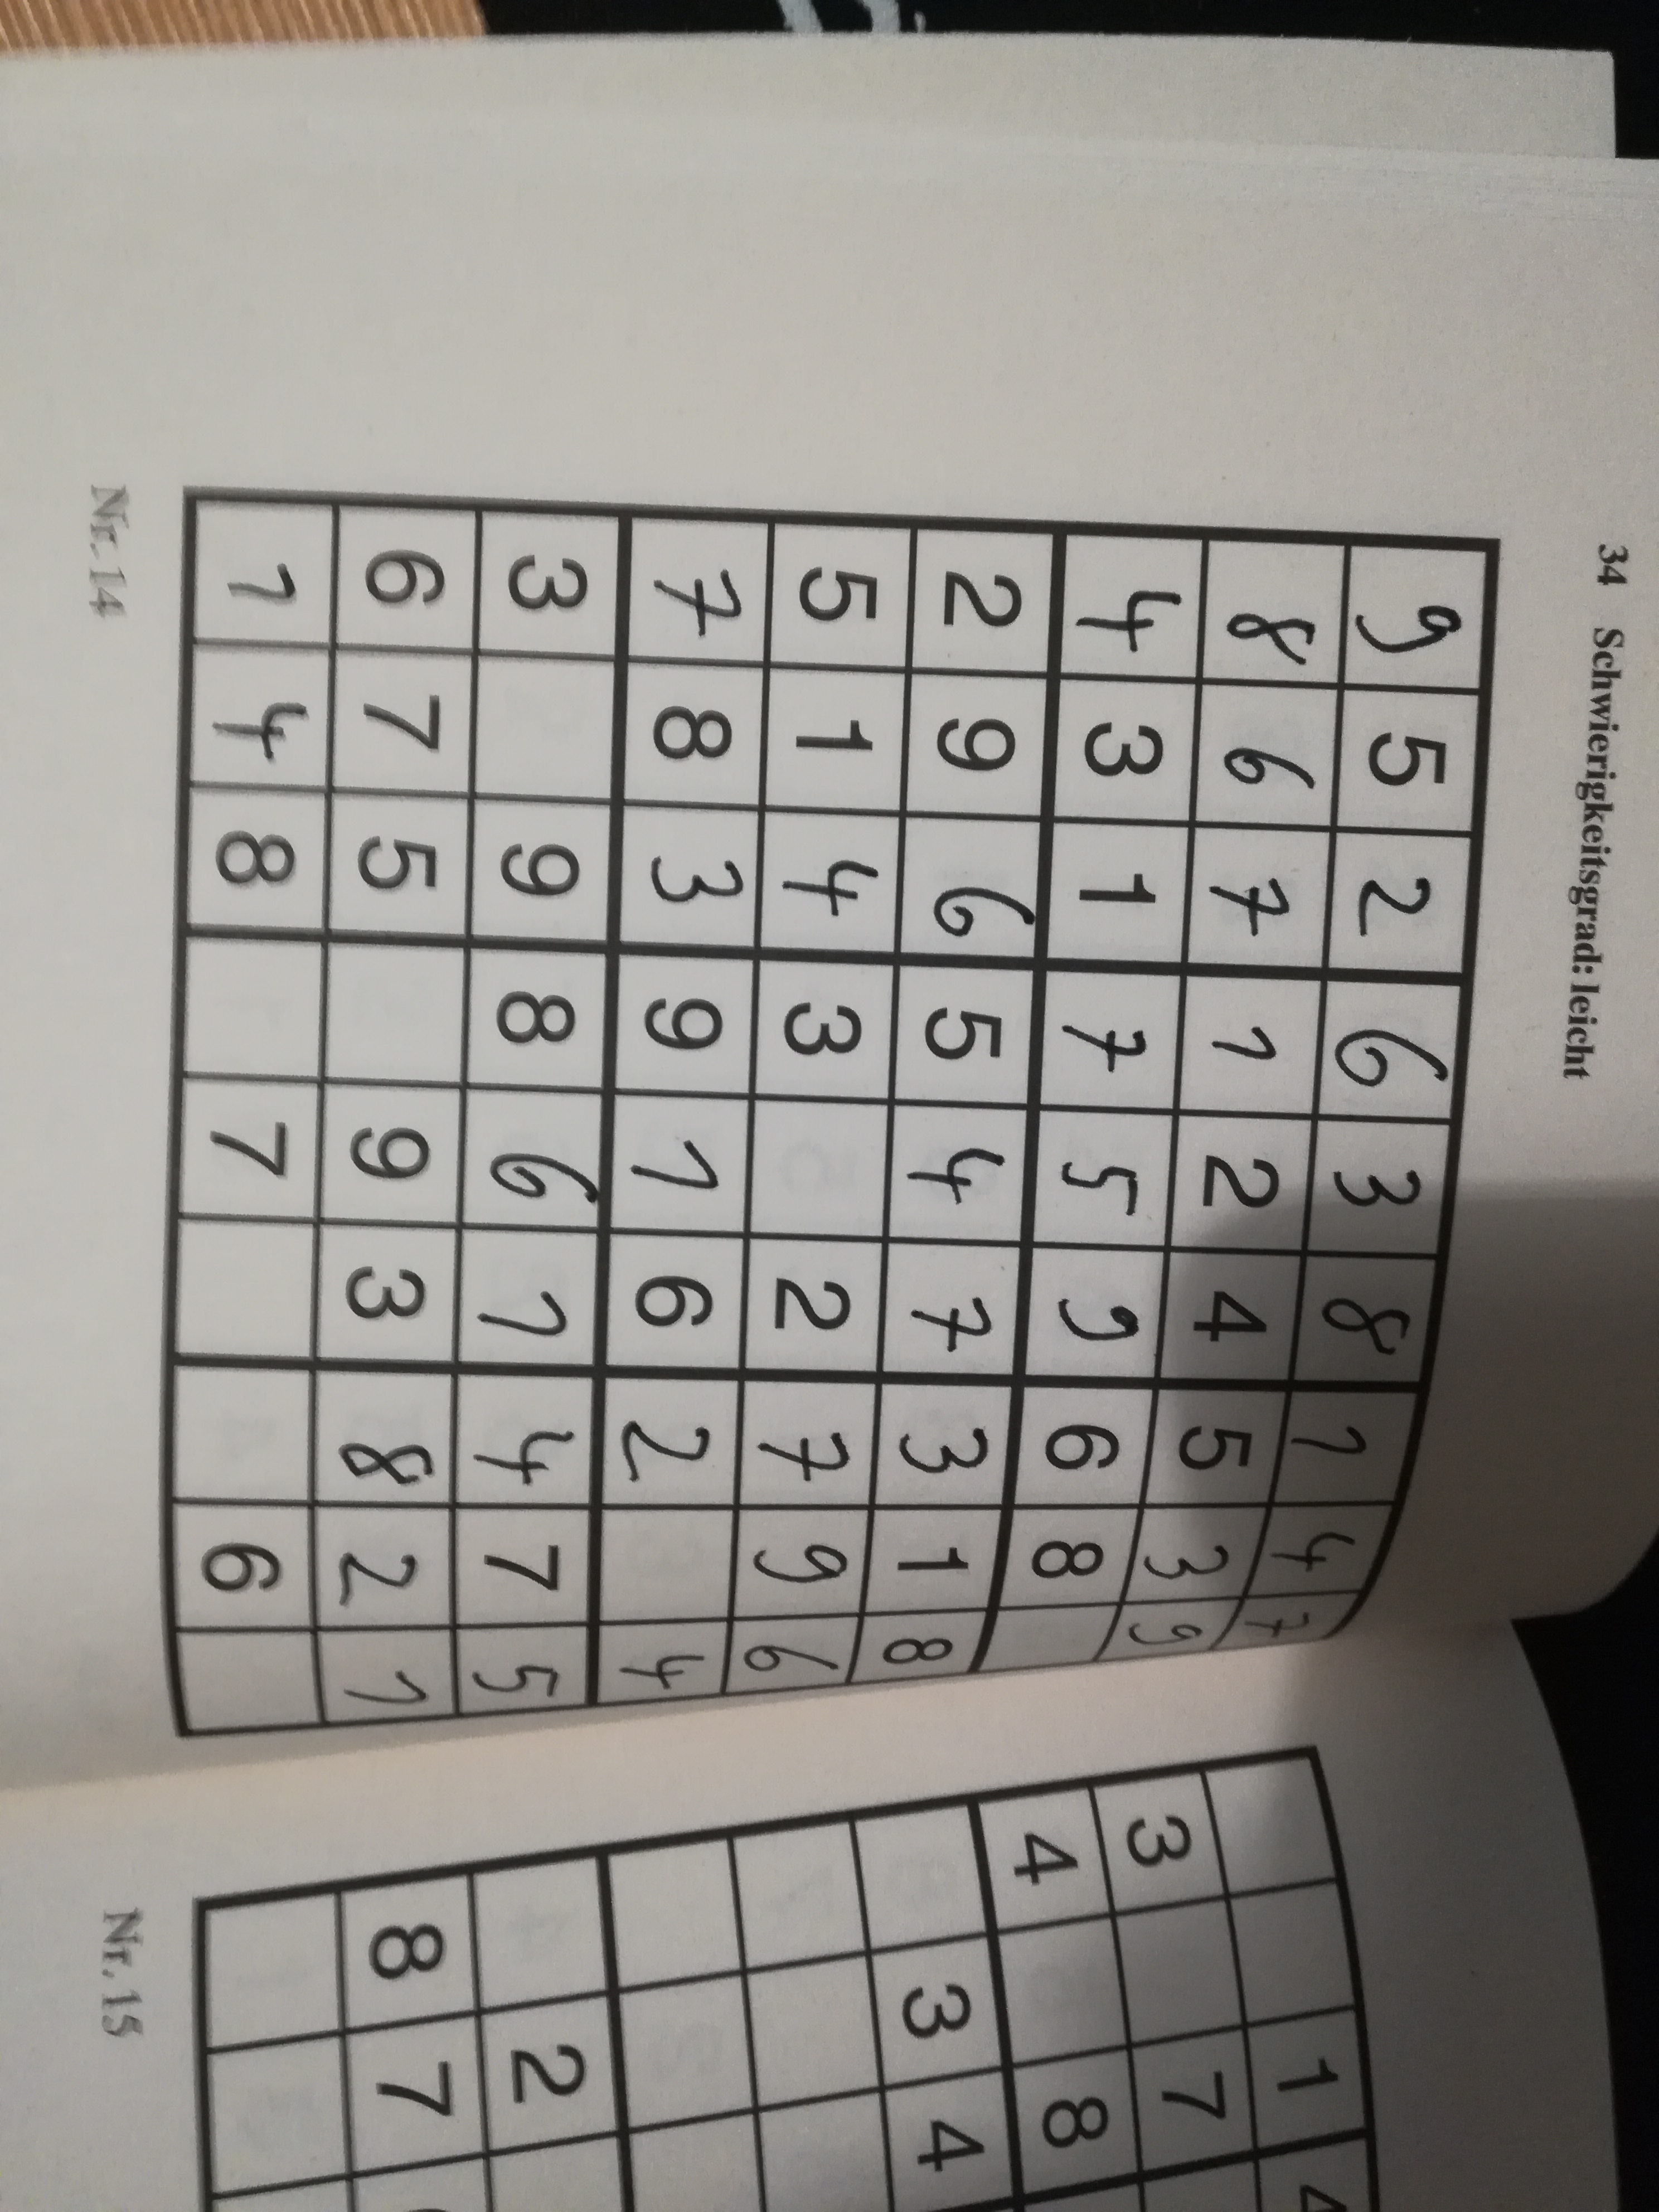 34 Schwierigkeitsgrad: leicht
9 5 2 6 3 8 1 4 7
8 6 7 1 2 4 5 3 9
4 3 1 7 5 9 6 8
2 9 6 5 4 7 3 1 8
5 1 4 3 2 7 9 6
7 8 3 9 1 6 2 4
3 9 8 6 1 4 7 5
6 7 5 9 3 8 2 1
1 4 8 7 6
Nr. 14
1 4
3 7
4 8
3 4
2
8 7
Nr. 15